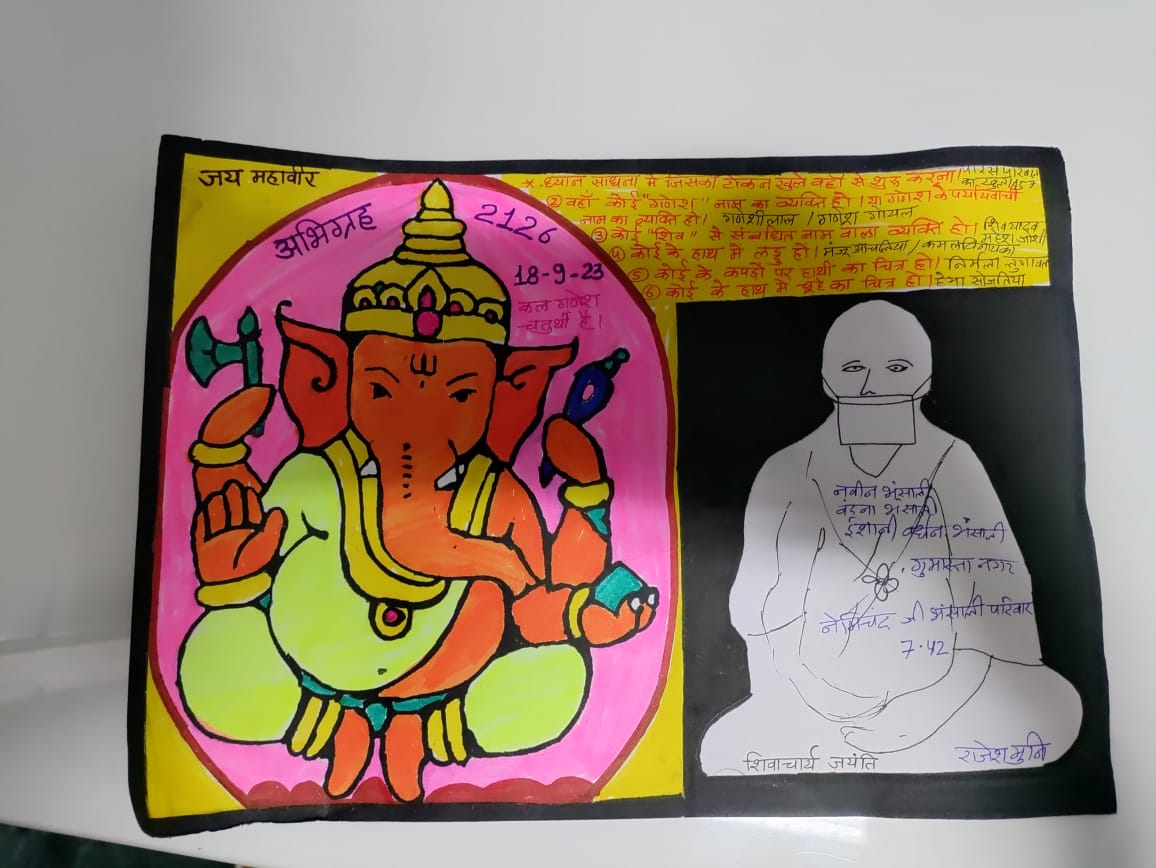 जय महावीर
अभिग्रह
2126
18-9-23
कल गणेश
चतुर्थी है।
*. ध्यान साधना में जिसका टोकन खुले वहाँ से शुरू करना।
② वहाँ कोई "गणेश" नाम का व्यक्ति हो। या गणेश के पर्यायवाची
नाम का व्यक्ति हो। गणेशीलाल / गणेश गोयल
③ कोई "शिव" से संबंधित नाम वाला व्यक्ति हो। शिव यादव
महेश जोशी
④ कोई के हाथ में लड्डु हो।
⑤ कोई के कपड़ों पर हाथी का चित्र हो। निर्मला
⑥ कोई के हाथ में चूहे का चित्र हो।
नवीन भंसाली
वंदना भंसाली
ईशाली वर्धन भंसाली
गुमास्ता नगर
नेमिचंद जी भंसाली परिवार
7.42
शिवाचार्य जयंति
राजेश मुनि